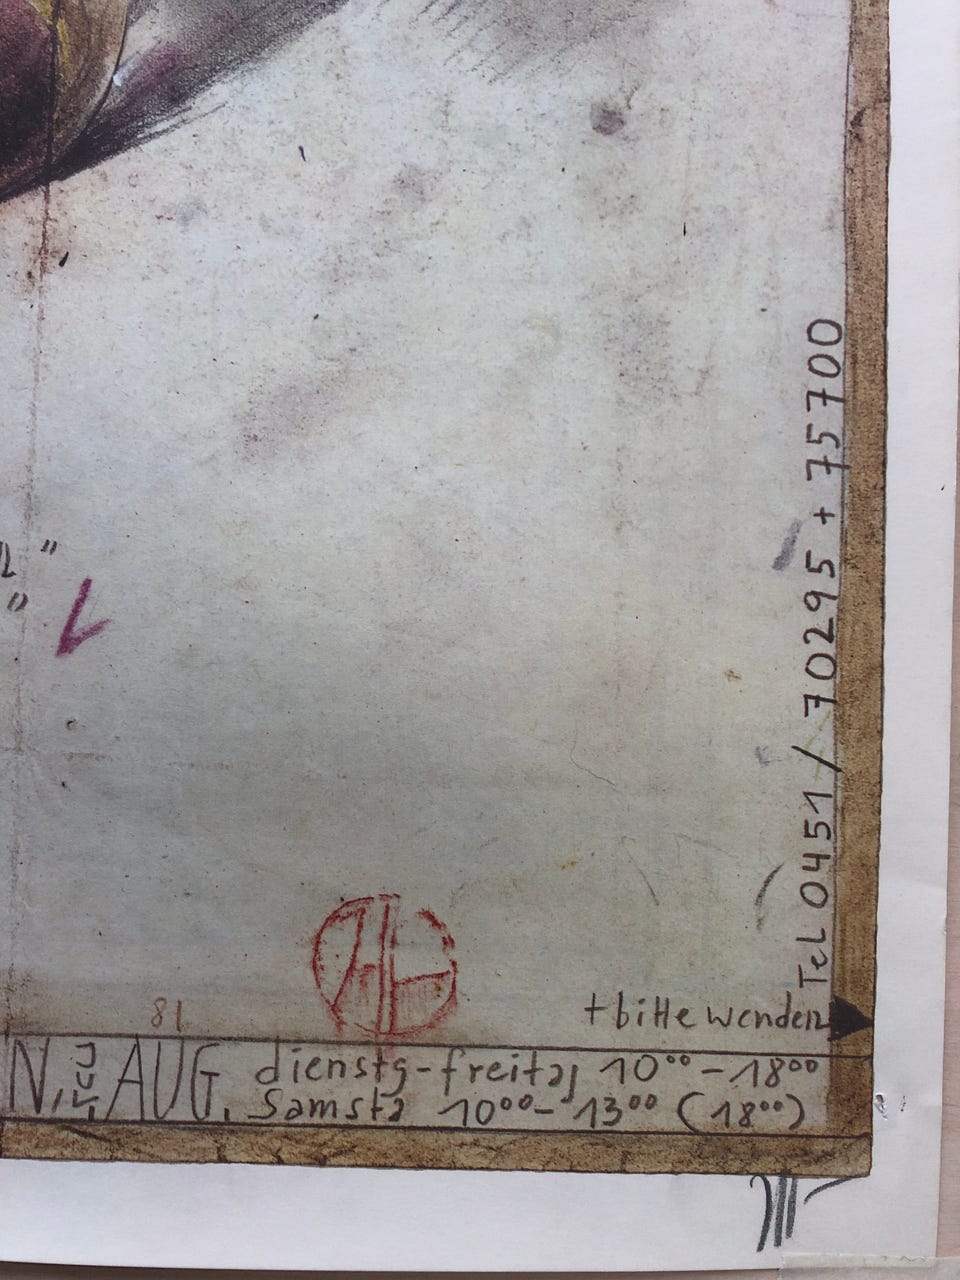 "
"
Tel 0451 / 70295 + 75700
+ bitte wenden
81
N, JULI, AUG, dienstg - freitag 10⁰⁰ - 18⁰⁰
Samsta 10⁰⁰ - 13⁰⁰ (18⁰⁰)